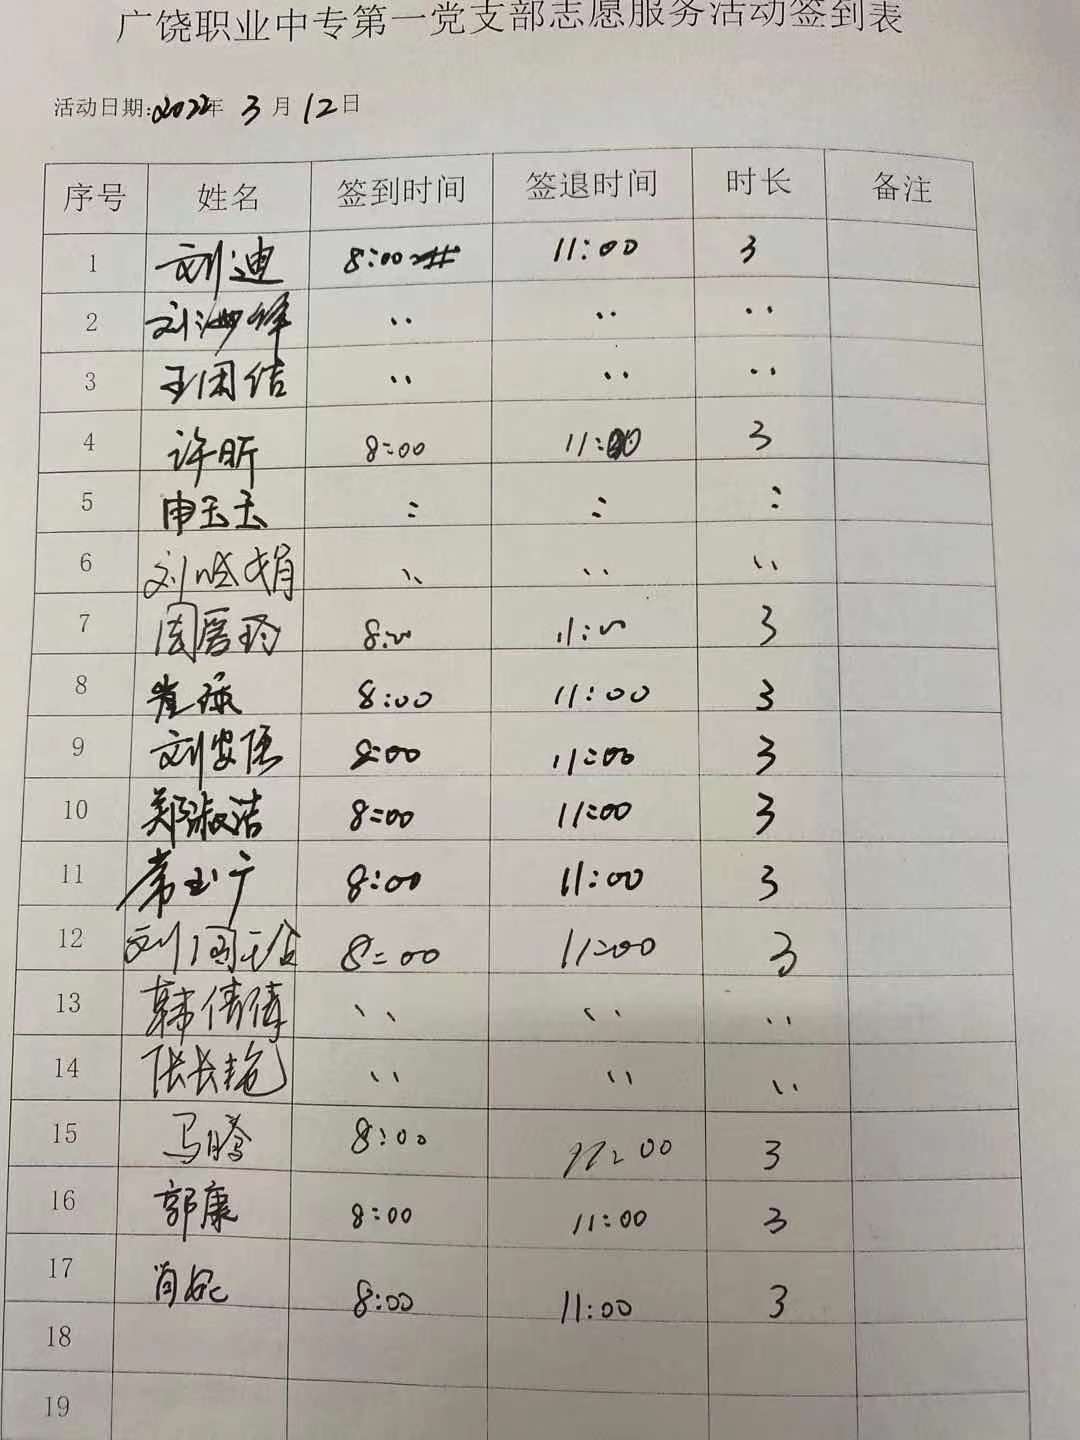 广饶职业中专第一党支部志愿服务活动签到表
活动日期:2022年 3月12日
序号 姓名 签到时间 签退时间 时长 备注
1 刘迪 8:00 11:00 3
2 刘 〃 〃 〃
3 王团结 〃 〃 〃
4 许昕 8:00 11:00 3
5 申玉玉 〃 〃 〃
6 刘 娟 〃 〃 〃
7 周 8:00 11:00 3
8 崔 8:00 11:00 3
9 刘安 8:00 11:00 3
10 郑淑洁 8:00 11:00 3
11 常玉广 8:00 11:00 3
12 刘 8:00 11:00 3
13 韩倩倩 〃 〃 〃
14 张长艳 〃 〃 〃
15 马腾 8:00 11:00 3
16 郭康 8:00 11:00 3
17 肖妮 8:00 11:00 3
18
19